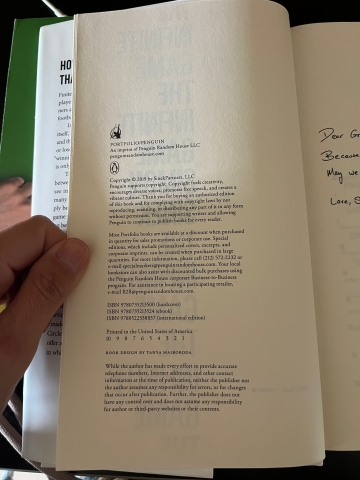 PORTFOLIO/PENGUIN
An imprint of Penguin Random House LLC
penguinrandomhouse.com
Copyright © 2019 by SinekPartners, LLC
Penguin supports copyright. Copyright fuels creativity,
encourages diverse voices, promotes free speech, and creates a
vibrant culture. Thank you for buying an authorized edition
of this book and for complying with copyright laws by not
reproducing, scanning, or distributing any part of it in any form
without permission. You are supporting writers and allowing
Penguin to continue to publish books for every reader.
Most Portfolio books are available at a discount when purchased
in quantity for sales promotions or corporate use. Special
editions, which include personalized covers, excerpts, and
corporate imprints, can be created when purchased in large
quantities. For more information, please call (212) 572-2232 or
e-mail specialmarkets@penguinrandomhouse.com. Your local
bookstore can also assist with discounted bulk purchases using
the Penguin Random House corporate Business-to-Business
program. For assistance in locating a participating retailer,
e-mail B2B@penguinrandomhouse.com.
ISBN 9780735213500 (hardcover)
ISBN 9780735213524 (ebook)
ISBN 9780525538837 (international edition)
Printed in the United States of America
10 9 8 7 6 5 4 3 2 1
BOOK DESIGN BY TANYA MAIBORODA
While the author has made every effort to provide accurate
telephone numbers, Internet addresses, and other contact
information at the time of publication, neither the publisher nor
the author assumes any responsibility for errors, or for changes
that occur after publication. Further, the publisher does not
have any control over and does not assume any responsibility
for author or third-party websites or their contents.
HO
THA
Finite
playe
Dear G
Because
May we
Love, S